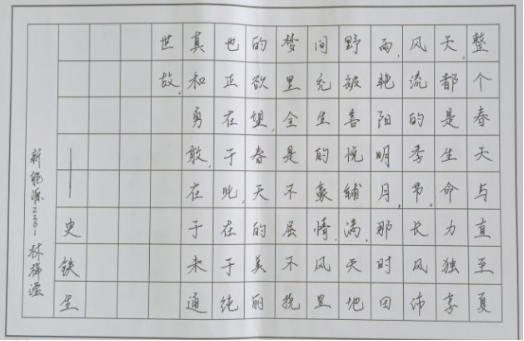 整个春天与直至夏
天,都是生命力独享
风流的季节。长风沛
雨,艳阳明月,那时田
野被喜悦铺满,天地
间充生的豪情,风里
梦里全是不屈不挠
的欲望,春天的美丽
也正在于此,在于纯
真和勇敢,在于未通
世故。
——史铁生
新能源